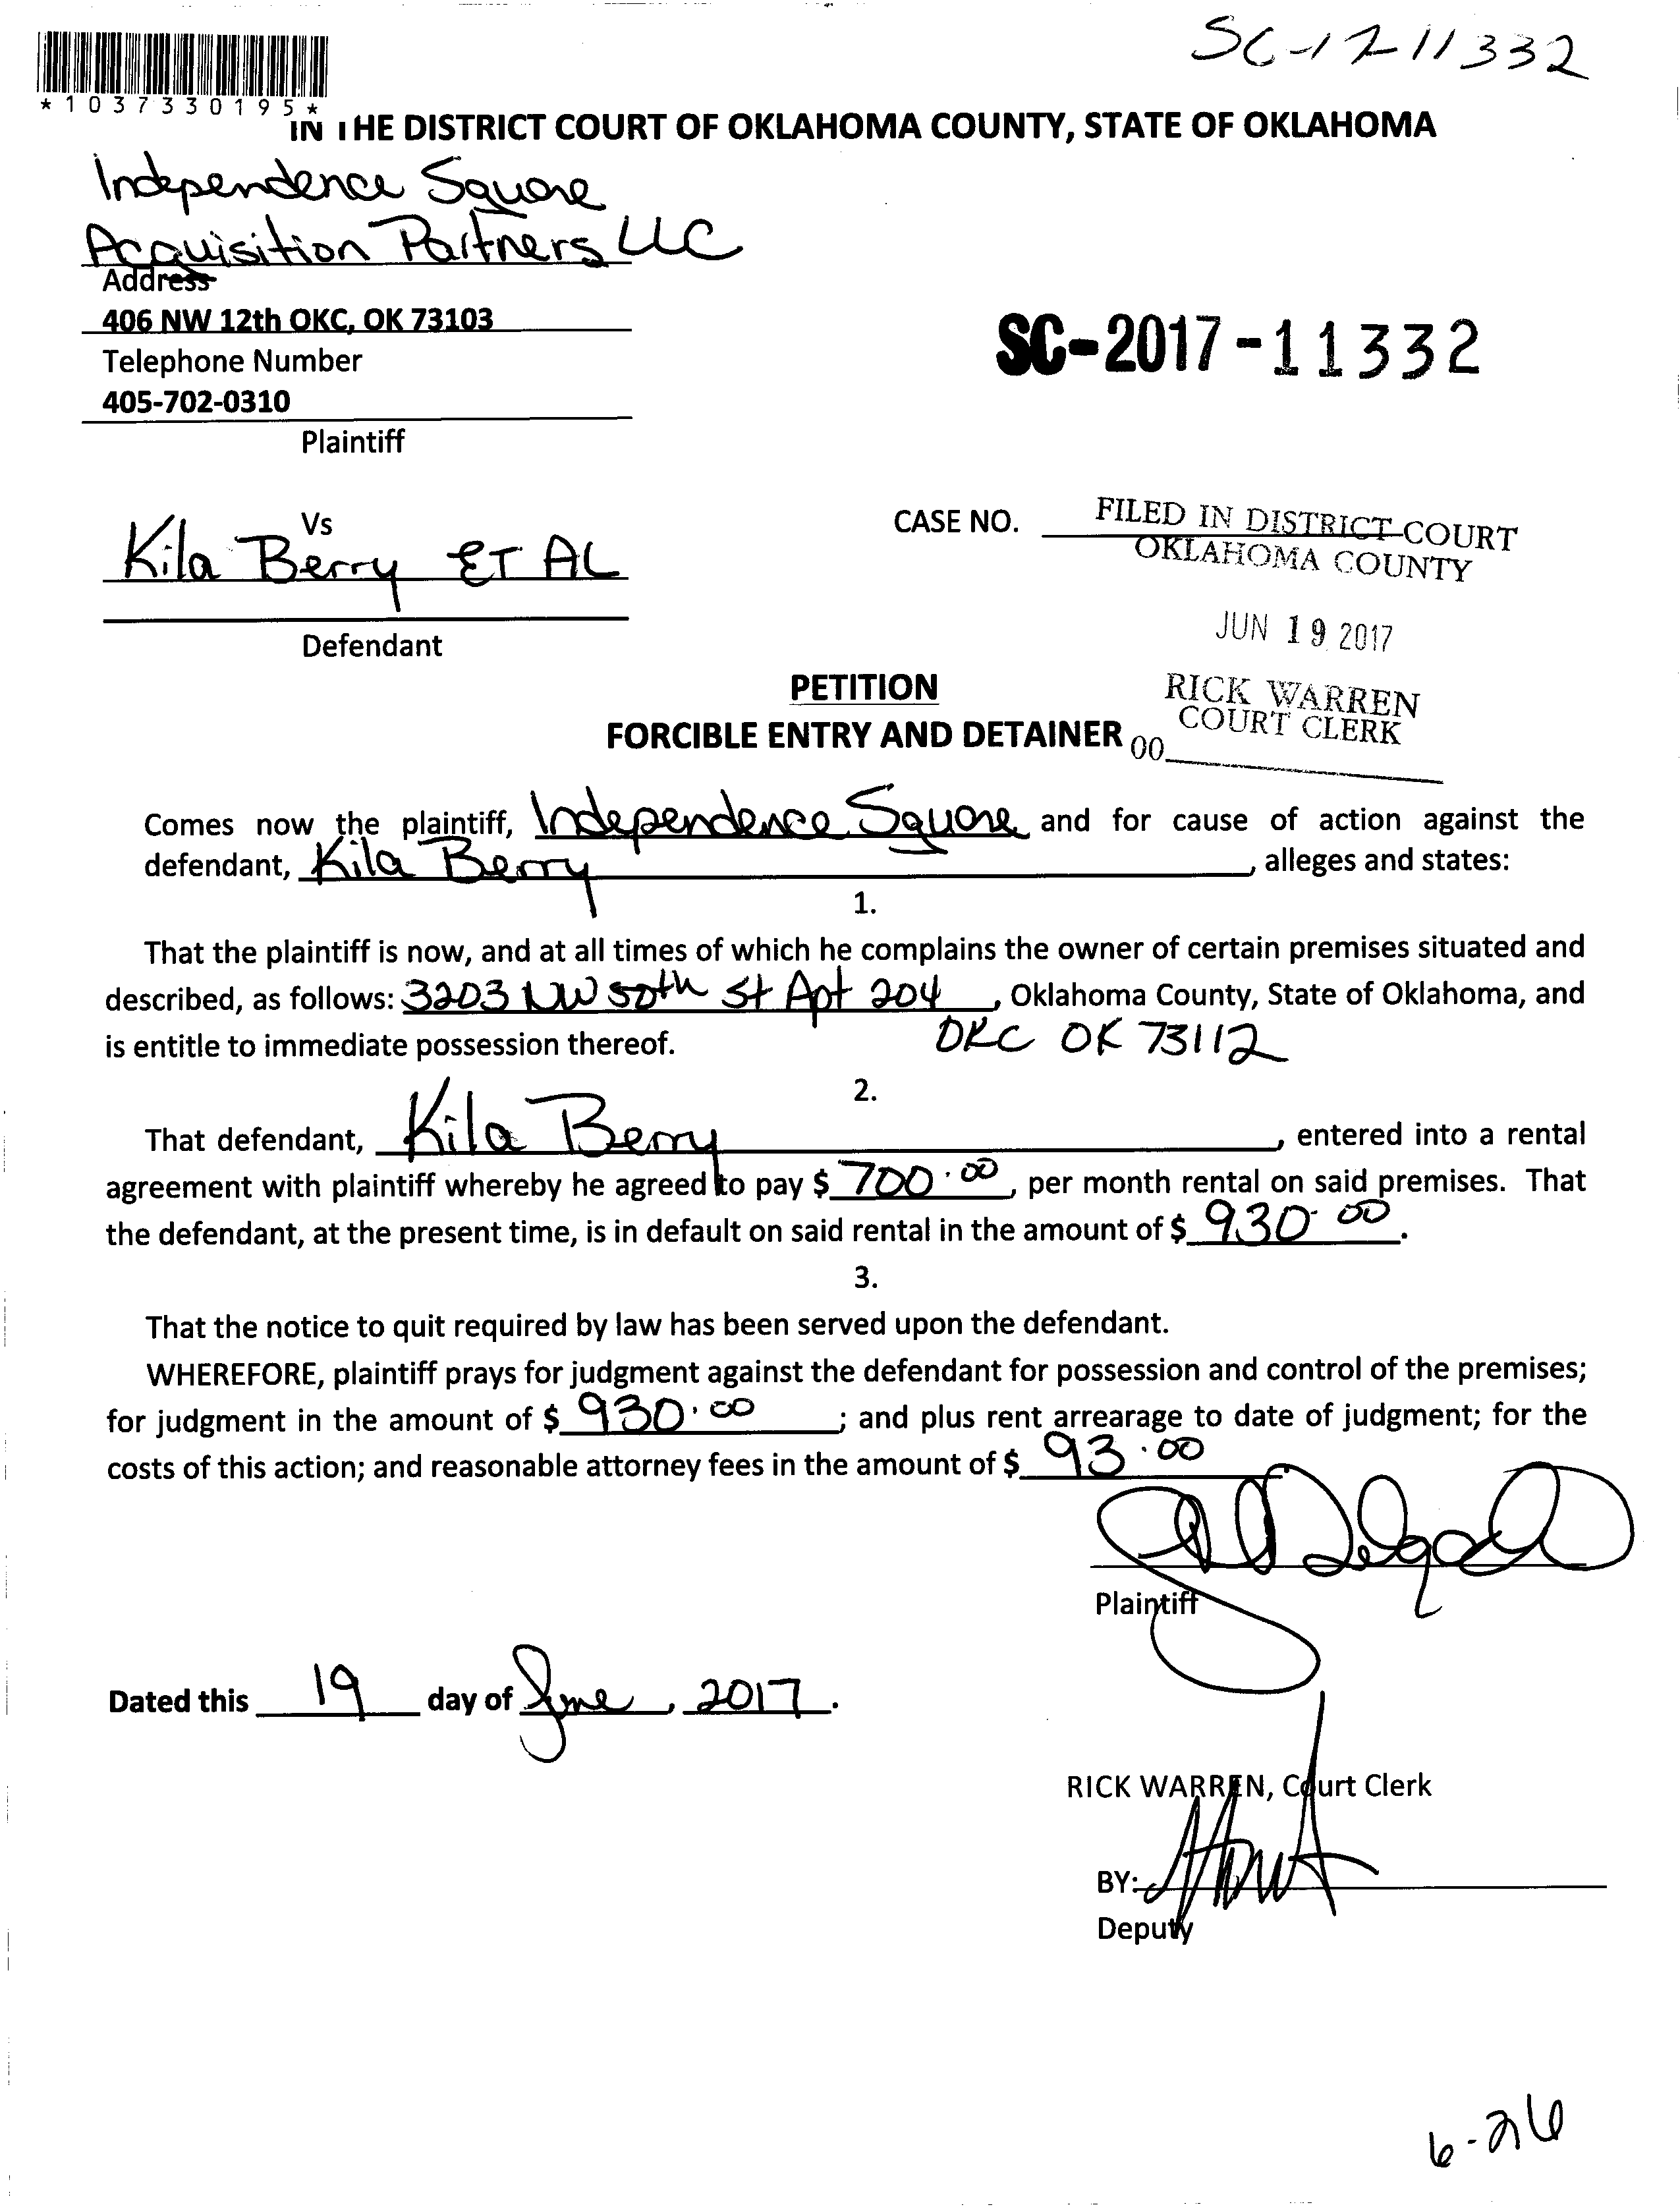 SC-17 11332
*1037330195*
IN THE DISTRICT COURT OF OKLAHOMA COUNTY, STATE OF OKLAHOMA
Independence Square
Acquisition Partners LLC
Address
406 NW 12th OKC, OK 73103
Telephone Number
405-702-0310
Plaintiff
SC-2017-11332
Vs
Kila Berry ET AL
Defendant
CASE NO.
FILED IN DISTRICT COURT
OKLAHOMA COUNTY
JUN 19 2017
RICK WARREN
COURT CLERK
00
PETITION
FORCIBLE ENTRY AND DETAINER
Comes now the plaintiff, Independence Square and for cause of action against the
defendant, Kila Berry, alleges and states:
1.
That the plaintiff is now, and at all times of which he complains the owner of certain premises situated and
described, as follows: 3203 NW 50th St Apt 204, Oklahoma County, State of Oklahoma, and
OKC OK 73112
is entitle to immediate possession thereof.
2.
That defendant, Kila Berry, entered into a rental
agreement with plaintiff whereby he agreed to pay $ 700.00, per month rental on said premises. That
the defendant, at the present time, is in default on said rental in the amount of $ 930.00.
3.
That the notice to quit required by law has been served upon the defendant.
WHEREFORE, plaintiff prays for judgment against the defendant for possession and control of the premises;
for judgment in the amount of $ 930.00; and plus rent arrearage to date of judgment; for the
costs of this action; and reasonable attorney fees in the amount of $ 93.00
Plaintiff
Dated this 19 day of June, 2017.
RICK WARREN, Court Clerk
BY:
Deputy
6-26